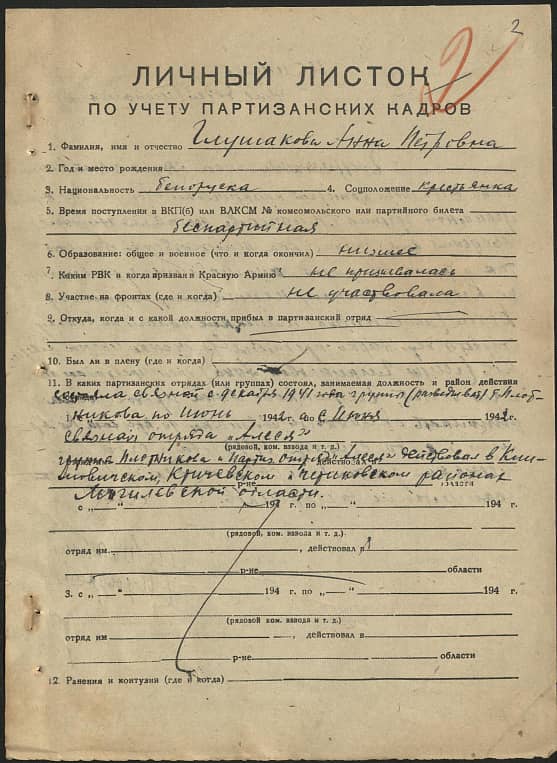 2
2
ЛИЧНЫЙ ЛИСТОК
ПО УЧЕТУ ПАРТИЗАНСКИХ КАДРОВ
1. Фамилия, имя и отчество Глушакова Анна Петровна
2. Год и место рождения
3. Национальность белоруска 4. Соцположение крестьянка
5. Время поступления в ВКП(б) или ВЛКСМ № комсомольского или партийного билета
беспартийная
6. Образование: общее и военное (что и когда окончил) низшее
7. Каким РВК и когда призван в Красную Армию не призывалась
8. Участие на фронтах (где и когда) не участвовала
9. Откуда, когда и с какой должности прибыл в партизанский отряд
10. Был ли в плену (где и когда)
11. В каких партизанских отрядах (или группах) состоял, занимаемая должность и район действия
состояла связной с декабря 1941 года группы (разведыват)
никова по июнь 1942 с июня 1942 г.
связная отряда „Алеся"
(рядовой, ком. взвода и т. д.)
группа и партиз. отряд „Алеся" действовал в Кли-
мовичском, Кричевском и Чериковском районах
Могилевской области.
с „ — " 194 г. по „ — " 194 г.
(рядовой, ком. взвода и т. д.)
отряд им. , действовал в
р-не области
3. с „ — " 194 г. по „ — " 194 г.
(рядовой, ком. взвода и т. д.)
отряд им. , действовал в
р-не области
12. Ранения и контузии (где и когда)